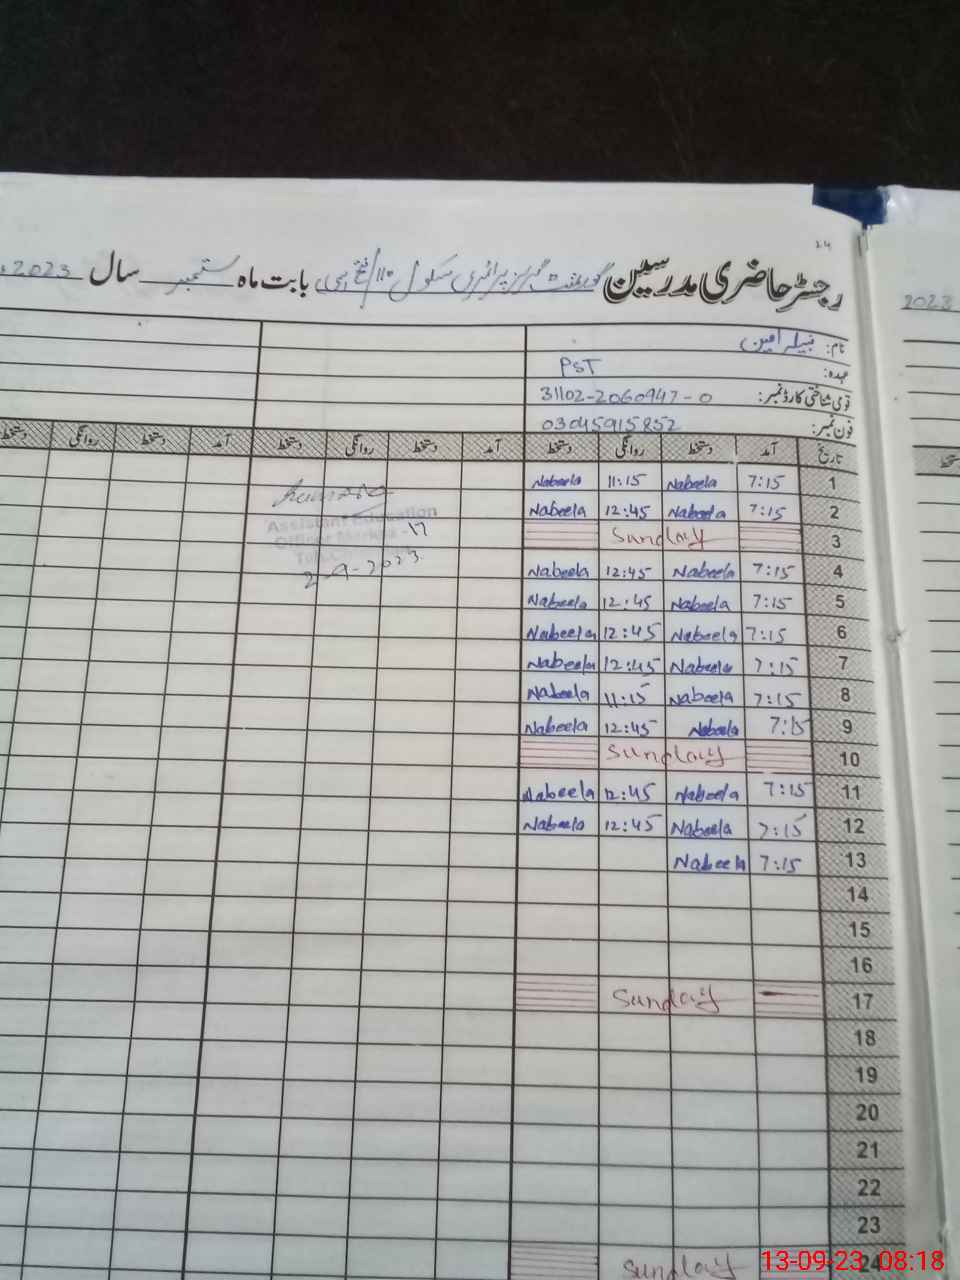 24
رجسٹر حاضری مدرسین گورنمنٹ گرلز پرائمری سکول 110/فتح بابت ماہ ستمبر سال 2023
2023
نام: نبیلہ امین
عہدہ: PST
قومی شناختی کارڈ نمبر: 31102-2060947-0
فون نمبر: 03045915852
تاریخ آمد دستخط روانگی دستخط آمد دستخط روانگی دستخط آمد دستخط روانگی دستخط
1 7:15 Nabeela 11:15 Nabeela
2 7:15 Nabeela 12:45 Nabeela
Assistant Education
Officer Markaz - 17
2-9-2023
3 Sunday
4 7:15 Nabeela 12:45 Nabeela
5 7:15 Nabeela 12:45 Nabeela
6 7:15 Nabeela 12:45 Nabeela
7 7:15 Nabeela 12:45 Nabeela
8 7:15 Nabeela 11:15 Nabeela
9 7:15 Nabeela 12:45 Nabeela
10 Sunday
11 7:15 Nabeela 12:45 Nabeela
12 7:15 Nabeela 12:45 Nabeela
13 7:15 Nabeela
14
15
16
17 Sunday
18
19
20
21
22
23
24 Sunday
13-09-23 08:18